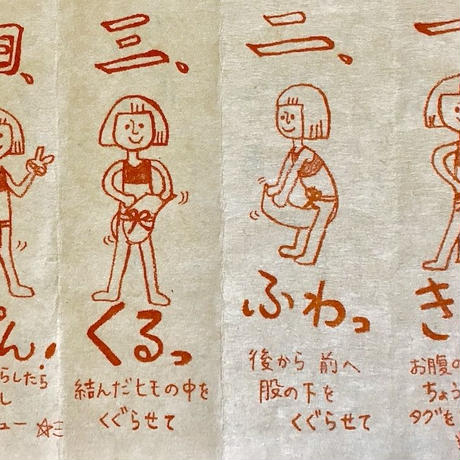 一、
き
お腹の
ちょう
タグを
二、
ふわっ
後から 前へ
股の下を
くぐらせて
三、
くるっ
結んだヒモの中を
くぐらせて
四、
ぱん!
らしたら
し
ュー ☆三